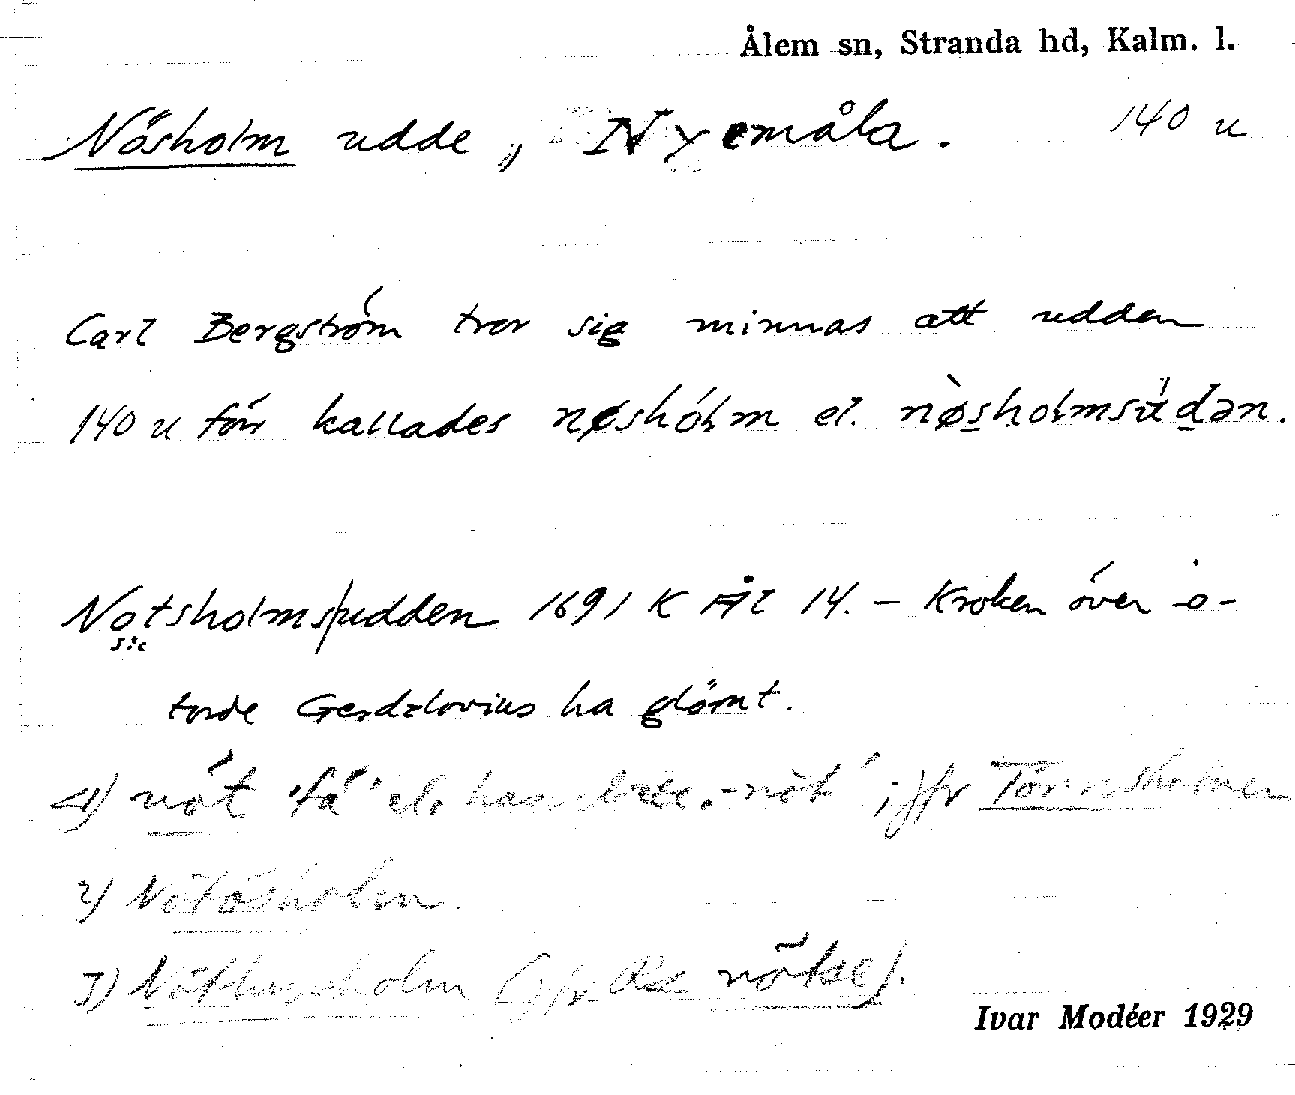 Ålem sn, Stranda hd, Kalm. l.
Nösholm udde, Nyemåla. 140 u
Carl Bergström tror sig minnas att udden
140 u förr kallades nøshólm el. nøsholmsìdən.
Notsholms|udden 1691 K Ål 14. – Kroken över -o-
sic
torde Gerdzlovius ha glömt.
1) nöt 'fä' el. -nöt'; jfr
2) Nötösholm
3) (jfr nötse).
Ivar Modéer 1929